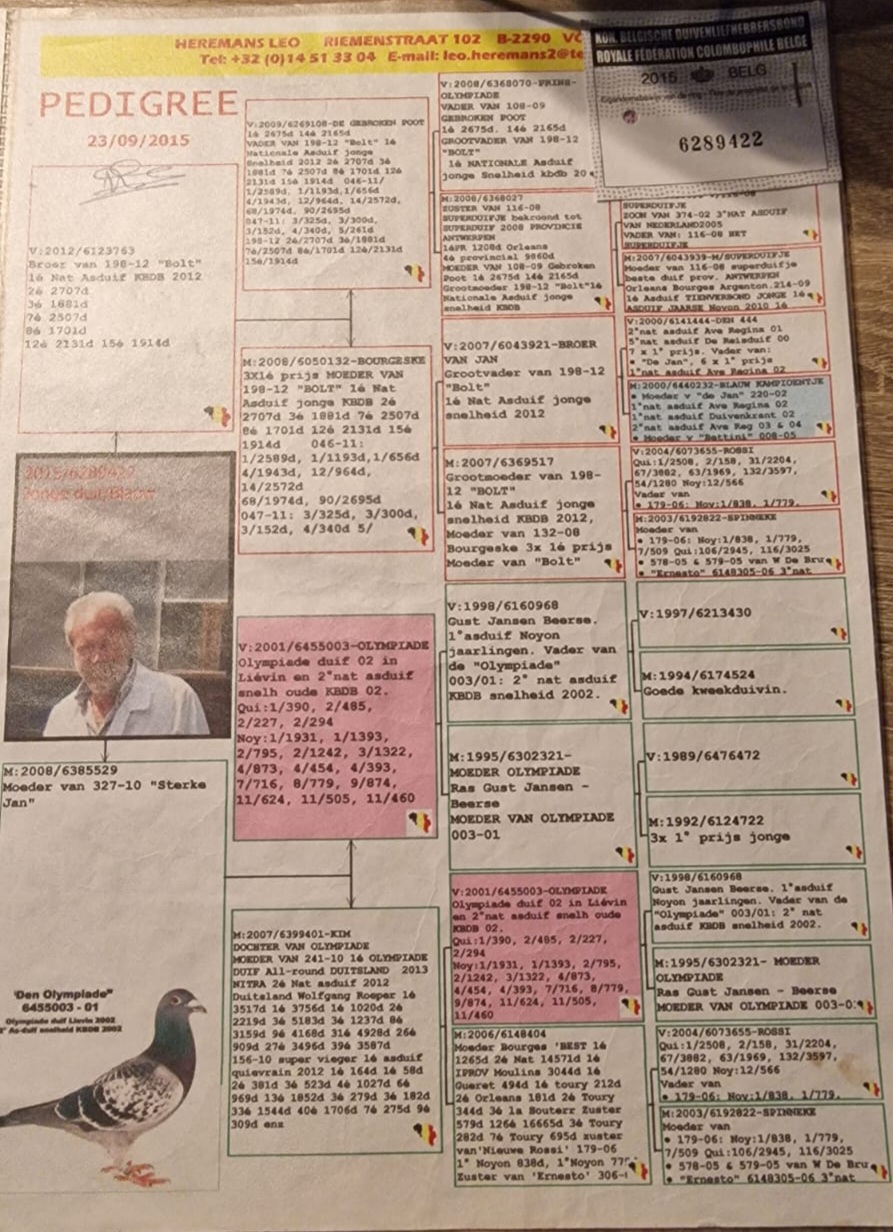 HEREMANS LEO RIEMENSTRAAT 102 B-2290
Tel: +32 (0)14 51 33 04 E-mail: leo.heremans2@te
KON. BELGISCHE DUIVENLIEFHEBBERSBOND
ROYALE FÉDÉRATION COLOMBOPHILE BELGE
2015 BELG
6289422
PEDIGREE
23/09/2015
V:2012/6123763
Broer van 198-12 "Bolt"
1é Nat Asduif KBDB 2012
2é 2707d
3é 1881d
7é 2507d
8é 1701d
12é 2131d 15é 1914d
M:2008/6385529
Moeder van 327-10 "Sterke
Jan"
"Den Olympiade"
6455003 - 01
Olympiade duif Lievin 2002
As-duif snelheid KBDB 2002
V:2009/6269108-DE GEBROKEN POOT
1é 2675d 14é 2165d
VADER VAN 198-12 "Bolt" 1é
Nationale Asduif jonge
Snelheid 2012 2é 2707d 3é
1881d 7é 2507d 8é 1701d 12é
2131d 15é 1914d 046-11/
1/2589d, 1/1193d,1/656d
4/1943d, 12/964d, 14/2572d,
68/1974d, 90/2695d
047-11: 3/325d, 3/300d,
3/152d, 4/340d, 5/261d
198-12 2é/2707d 3é/1881d
7é/2507d 8é/1701d 12é/2131d
15é/1914d
M:2008/6050132-BOURGESKE
3X1é prijs MOEDER VAN
198-12 "BOLT" 1é Nat
Asduif jonge KBDB 2é
2707d 3é 1881d 7é 2507d
8é 1701d 12é 2131d 15é
1914d 046-11:
1/2589d, 1/1193d,1/656d
4/1943d, 12/964d,
14/2572d
68/1974d, 90/2695d
047-11: 3/325d, 3/300d,
3/152d, 4/340d 5/
V:2001/6455003-OLYMPIADE
Olympiade duif 02 in
Liévin en 2°nat asduif
snelh oude KBDB 02.
Qui:1/390, 2/485,
2/227, 2/294
Noy:1/1931, 1/1393,
2/795, 2/1242, 3/1322,
4/873, 4/454, 4/393,
7/716, 8/779, 9/874,
11/624, 11/505, 11/460
M:2007/6399401-KIM
DOCHTER VAN OLYMPIADE
MOEDER VAN 241-10 1é OLYMPIADE
DUIF All-round DUITSLAND 2013
NITRA 2é Nat asduif 2012
Duitsland Wolfgang Roeper 1é
3517d 1é 3756d 1é 1020d 2é
2219d 3é 5183d 3é 1237d 8é
3159d 9é 4168d 31é 4928d 26é
909d 27é 3496d 39é 3587d
156-10 super vieger 1é asduif
quievrain 2012 1é 164d 1é 58d
2é 381d 3é 523d 4é 1027d 6é
969d 13é 1852d 3é 279d 3é 182d
33é 1544d 40é 1706d 7é 275d 9é
309d enz
V:2008/6368070-PRINS-
OLYMPIADE
VADER VAN 108-09
GEBROKEN POOT
1é 2675d. 14é 2165d
GROOTVADER VAN 198-12
"BOLT"
1é NATIONALE Asduif
jonge Snelheid kbdb 20
M:2008/6368027
ZUSTER VAN 116-08
SUPERDUIFJE bekroond tot
SUPERDUIF 2008 PROVINCIE
ANTWERPEN
1éPR 1208d Orleans
4é provincial 9860d
MOEDER VAN 108-09 Gebroken
Poot 1é 2675d 14é 2165d
Grootmoeder 198-12 "Bolt"1é
Nationale Asduif jonge
snelheid KBDB
V:2007/6043921-BROER
VAN JAN
Grootvader van 198-12
"Bolt"
1é Nat Asduif jonge
snelheid 2012
M:2007/6369517
Grootmoeder van 198-
12 "BOLT"
1é Nat Asduif jonge
snelheid KBDB 2012,
Moeder van 132-08
Bourgeske 3x 1é prijs
Moeder van "Bolt"
V:1998/6160968
Gust Jansen Beerse.
1°asduif Noyon
jaarlingen. Vader van
de "Olympiade"
003/01: 2° nat asduif
KBDB snelheid 2002.
M:1995/6302321-
MOEDER OLYMPIADE
Ras Gust Jansen -
Beerse
MOEDER VAN OLYMPIADE
003-01
V:2001/6455003-OLYMPIADE
Olympiade duif 02 in Liévin
en 2°nat asduif snelh oude
KBDB 02.
Qui:1/390, 2/485, 2/227,
2/294
Noy:1/1931, 1/1393, 2/795,
2/1242, 3/1322, 4/873,
4/454, 4/393, 7/716, 8/779,
9/874, 11/624, 11/505,
11/460
M:2006/6148404
Moeder Bourges 'BEST 1é
1265d 2é Nat 14571d 1é
IPROV Moulins 3044d 1é
Gueret 494d 1é toury 212d
2é Orleans 181d 2é Toury
344d 3é la Souterr Zuster
579d 126é 16665d 3é Toury
282d 7é Toury 695d zuster
van'Nieuwe Rossi' 179-06
1° Noyon 838d, 1°Noyon
Zuster van 'Ernesto' 306-
SUPERDUIFJE
ZOON VAN 374-02 3°NAT ASDUIF
VAN NEDERLAND2005
VADER VAN: 116-08 HET
SUPERDUIFJE
M:2007/6043939-M/SUPERDUIFJE
Moeder van 116-08 superduifje
beste duif prov. ANTWERPEN
Orleans Bourges Argenton.214-09
1é Asduif TIENVERBOND JONGE 1é
ASDUIF JAARSE Noyon 2010 1é
V:2000/6141444-DEN 444
2°nat asduif Ave Regina 01
5°nat asduif De Reisduif 00
7 x 1° prijs. Vader van:
• "De Jan", 6 x 1° prijs
1°nat asduif Ave Regina 02
M:2000/6440232-BLAUW KAMPIOENTJE
• Moeder v "de Jan" 220-02
1°nat asduif Ave Regina 02
1°nat asduif Duivenkrant 02
2°nat asduif Ave Reg 03 & 04
• Moeder v "Bettini" 008-05
V:2004/6073655-ROSSI
Qui:1/2508, 2/158, 31/2204,
67/3882, 63/1969, 132/3597,
54/1280 Noy:12/566
Vader van
• 179-06: Noy:1/838, 1/779,
M:2003/6192822-SPINNEKE
Moeder van
• 179-06: Noy:1/838, 1/779,
7/509 Qui:106/2945, 116/3025
• 578-05 & 579-05 van W De Bru
• "Ernesto" 6148305-06 3°nat
V:1997/6213430
M:1994/6174524
Goede kweekduivin.
V:1989/6476472
M:1992/6124722
3x 1° prijs jonge
V:1998/6160968
Gust Jansen Beerse. 1°asduif
Noyon jaarlingen. Vader van de
"Olympiade" 003/01: 2° nat
asduif KBDB snelheid 2002.
M:1995/6302321- MOEDER
OLYMPIADE
Ras Gust Jansen - Beerse
MOEDER VAN OLYMPIADE 003-0
V:2004/6073655-ROSSI
Qui:1/2508, 2/158, 31/2204,
67/3882, 63/1969, 132/3597,
54/1280 Noy:12/566
Vader van
• 179-06: Noy:1/838, 1/779,
M:2003/6192822-SPINNEKE
Moeder van
• 179-06: Noy:1/838, 1/779,
7/509 Qui:106/2945, 116/3025
• 578-05 & 579-05 van W De Bru
• "Ernesto" 6148305-06 3°nat